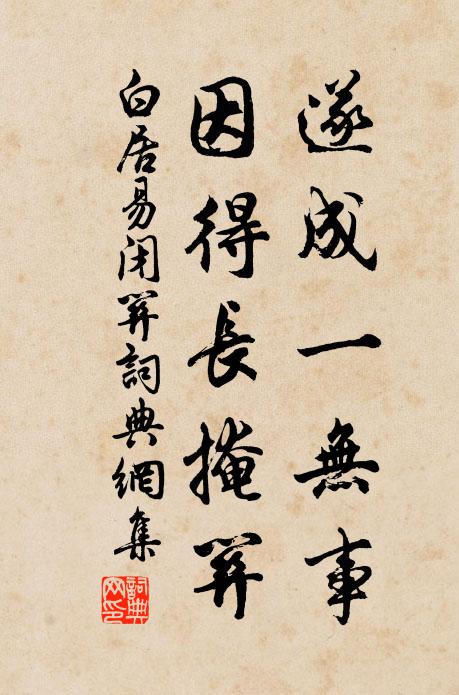 遂成一無事
因得長掩關
白居易閉關詞典網集
詞典網印